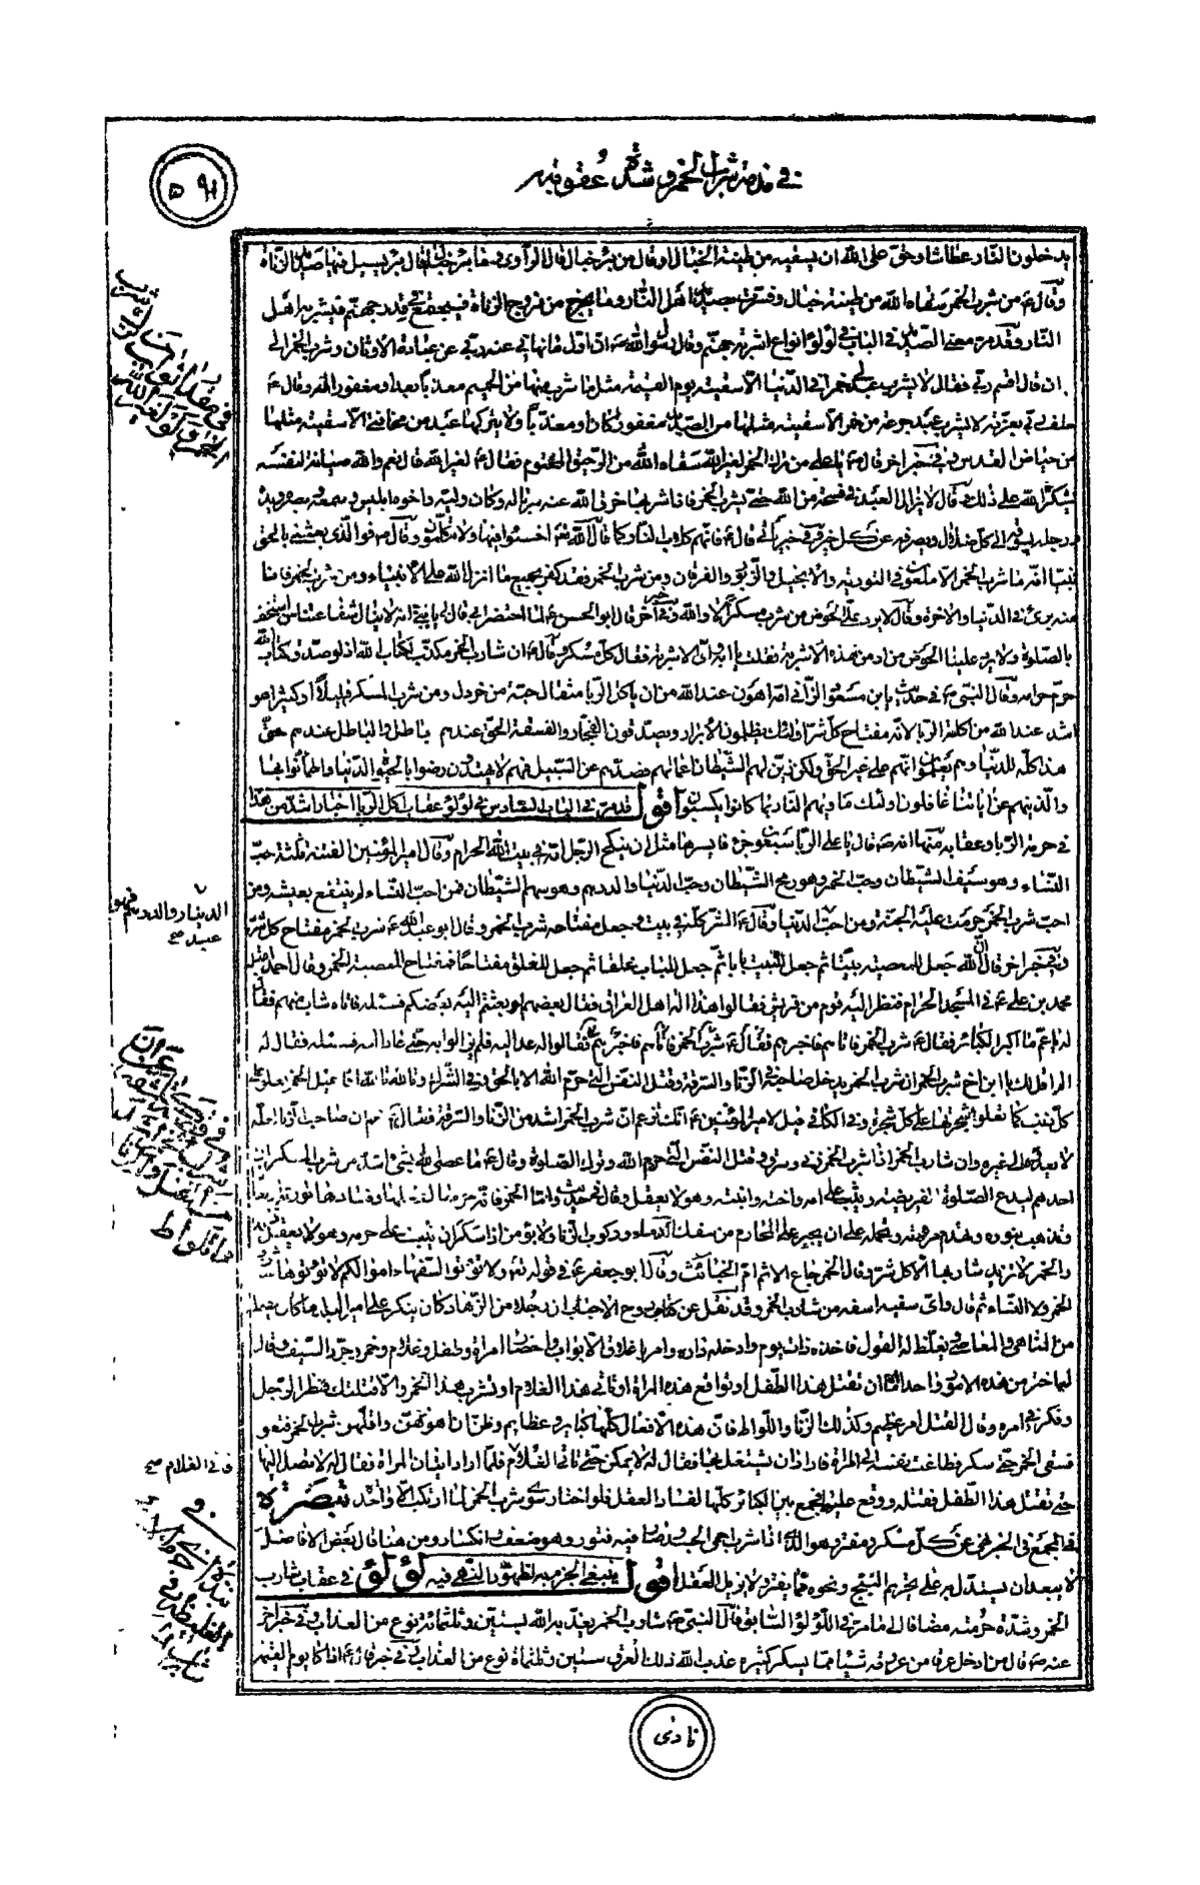 في مذمة شراب الخمر وشدة عقوبته
يدخلون النار عطاشا وحق على الله ان يسقيه من طينة الخبال او قال من بئر خبال قال الراوي وما بئر خبال قال بئر يسيل فيها صديد الزناة
وقال ع من شرب الخمر سقاه الله من طينة خبال وفسرت بصديد اهل النار وما يخرج من فروج الزناة فيجتمع في قدر جهنم فيشربه اهل
النار وقد مر معنى الصديد في الباب في لؤلؤ انواع اشربة جهنم وقال رسول الله ص ان اول ما نهاني عنه ربي عن عبادة الاوثان وشرب الخمر الى
ان قال اقسم ربي فقال لا يشرب عبد لي خمرا في الدنيا الا سقيته يوم القيمة مثل ما شرب منها من الحميم معذبا بعد او مغفورا له وقال ع
حلف ربي بعزته لا يشرب عبد جرعة من خمر الا سقيته مثلها من الصديد مغفورا كان او معذبا ولا يتركها عبد من مخافتي الا سقيته مثلها
من حياض القدس وفي خبر اخر قال ص يا علي من ترك الخمر لغير الله سقاه الله من الرحيق المختوم فقال ع لغير الله قال نعم والله صيانة لنفسه
يشكره الله على ذلك وقال لا يزال العبد في فسحة من الله حتى يشرب الخمر فاذا شربها خرق الله عنه سرباله وكان وليه واخوه ابليس وسمعه وبصره ويده
ورجله يسوقه الى كل ضلال ويصرفه عن كل خير وفي خبر اخر قال ع فانهم كلاب النار كما قال الله تعالى اخسئوا فيها ولا تكلمون وقال ص فو الذي بعثني بالحق
نبيا انه ما شرب الخمر الا ملعون في التورية والانجيل والزبور والفرقان ومن شرب الخمر فقد كفر بجميع ما انزل الله على الانبياء ومن شرب الخمر فانا
منه بريئ في الدنيا والاخرة وقال لا يرد على الحوض من شرب مسكرا لا والله وفي خبر آخر قال ابو الحسن ع لما احتضر ابي قال لي يا بني انه لا ينال شفاعتنا من استخف
بالصلوة ولا يرد علينا الحوض من ادمن هذه الاشربة فقلت يا ابه واي الاشربة فقال كل مسكر وقال ع ان شارب الخمر مكذب بكتاب الله اذ لو صدق كتاب الله
حرم حرامه وقال النبي ص في حديث يا بن مسعود الزاني بامه اهون عند الله من ان ياكل الربا مثقال حبة من خردل ومن شرب المسكر قليلا او كثيرا هو
اشد عند الله من اكلة الربا لانه مفتاح كل شر اولئك يظلمون الابرار ويصدقون الفجار والفسقة الحق عندهم باطل والباطل عندهم حق
هذا كله للدنيا وهم يعلمون انهم على غير الحق ولكن زين لهم الشيطان اعمالهم فصدهم عن السبيل فهم لا يهتدون رضوا بالحيوة الدنيا واطمأنوا بها
والذين هم عن اياتنا غافلون اولئك ماويهم النار بما كانوا يكسبون اقول قد مر في الباب السادس في لؤلؤ عقاب اكل الربا اخبار اشد من هذا
في حرمة الربا وعقابه منها انه ص قال يا علي الربا سبعون جزء فايسرها مثل ان ينكح الرجل امه في بيت الله الحرام وقال امير المؤمنين الفتنة ثلثة حب
النساء وهو سيف الشيطان وحب الخمر وهو رمح الشيطان وحب الدنيا والدرهم وهو سهم الشيطان فمن احب النساء لم ينتفع بعيشه ومن
احب شرب الخمر حرمت عليه الجنة ومن احب الدنيا وقال ع الشر كله في بيت وجعل مفتاحه شرب الخمر وقال ابو عبد الله ع شرب الخمر مفتاح كل شر
وفي خبر اخر قال ان الله جعل للمعصية بيتا ثم جعل للبيت بابا ثم جعل للباب غلقا ثم جعل للغلق مفتاحا فمفتاح المعصية الخمر وقال
محمد بن علي ع في المسجد الحرام فنظر اليه قوم من قريش فقالوا هذا اله اهل العراق فقال بعضهم لو بعثتم اليه بعضكم فسئله فاتاه شاب منهم فقال
له يا عم ما اكبر الكبائر فقال ع شرب الخمر فاتاهم فاخبرهم فقالوا له عد اليه فلم يزالوا به حتى عاد اليه فسئله فقال له
الم اقل لك يا ابن اخ شرب الخمر ان شرب الخمر يدخل صاحبه في الزنا والسرقة وقتل النفس التي حرم الله الا بالحق وفي الشرك
كل ذنب كما تعلو شجرتها على كل شجرة وفي الكافي قيل لامير المؤمنين ع انك تزعم ان شرب الخمر اشد من الزنا والسرقة فقال ع نعم ان صاحب الزنا لعله
لا يعدوه الى غيره وان شارب الخمر اذا شرب الخمر زنى وسرق وقتل النفس التي حرم الله وترك الصلوة وقال ع ما عصى الله بشئ اشد من شرب المسكر ان
احدهم ليدع الصلوة الفريضة ويثب على امه واخته وابنته وهو لا يعقل
وتذهب بنوره وتهدم مروته وتحمله على ان يجسر على المحارم من سفك الدماء وركوب الزنا ولا يؤمن اذا سكر ان يثب على حرمه وهو لا يعقل ذلك
والخمر لا تزيد شاربها الا كل شر وقال الخمر جماع الاثم ام الخبائث وقال ابو جعفر ع في قوله تعالى ولا تؤتوا السفهاء اموالكم لا تؤتوها شارب
الخمر ولا النساء ثم قال واي سفيه اسفه من شارب الخمر وقد نقل عن كتاب روح الاحباب ان رجلا من الزهاد كان ينكر على امير البلد ما كان
من المناهي والمعاصي ويغلظ له القول فاخذه ذات يوم وادخله داره وامر باغلاق الابواب واحضار امراة وطفل وغلام وخمر وجرد السيف وقال
لها اختر من هذه الامور واحدا اما ان تقتل هذا الطفل او تواقع هذه المراة او تاتي هذا الغلام او تشرب هذا الخمر والا قتلتك فنظر الرجل
وفكر في امره وقال القتل امر عظيم وكذلك الزنا واللواط فان هذه الافعال كلها كبائر عظايم وظن ان اهونهن واقلهن شرب الخمر
فسقى الخمر حتى سكر فطاعت نفسه الى المراة فاراد ان يشتغل بها فقال له لا يمكن حتى تاتي الغلام فلما اراد ايقان المراة فقال له لا تصل اليها
حتى تقتل هذا الطفل فقتله ووقع عليها فجمع بين الكبائر كلها لفساد العقل فلو اختار سوى شرب الخمر لما ارتكب الا واحد تبصرة
في المجمع في الخبر نهى عن كل مسكر ومفتر وهو الذي اذا شرب احمى الجسد وصار فيه فتور وهو ضعف وانكسار ومن هنا قال بعض الافاضل
لا يبعد ان يستدل به على تحريم البنج ونحوه مما يفتر ولا يزيل العقل اقول ينبغي الجزم به لظهور النهي فيه لؤلؤ في عقاب شارب
الخمر وشدة حرمته مضافا الى ما مر في اللؤلؤ السابق قال النبي ص شارب الخمر يعذبه الله بستين وثلثمائة نوع من العذاب وفي خبر اخر
عنه ص قال من ادخل عرقا من عروقه شيئا مما يسكر كثيره عذب الله ذلك العرق بستين وثلثمائة نوع من العذاب وفي خبر قال ع اذا كان يوم القيمة
الدينار والدرهم فهو
عبد صح
فاتى الغلام صح
نادى